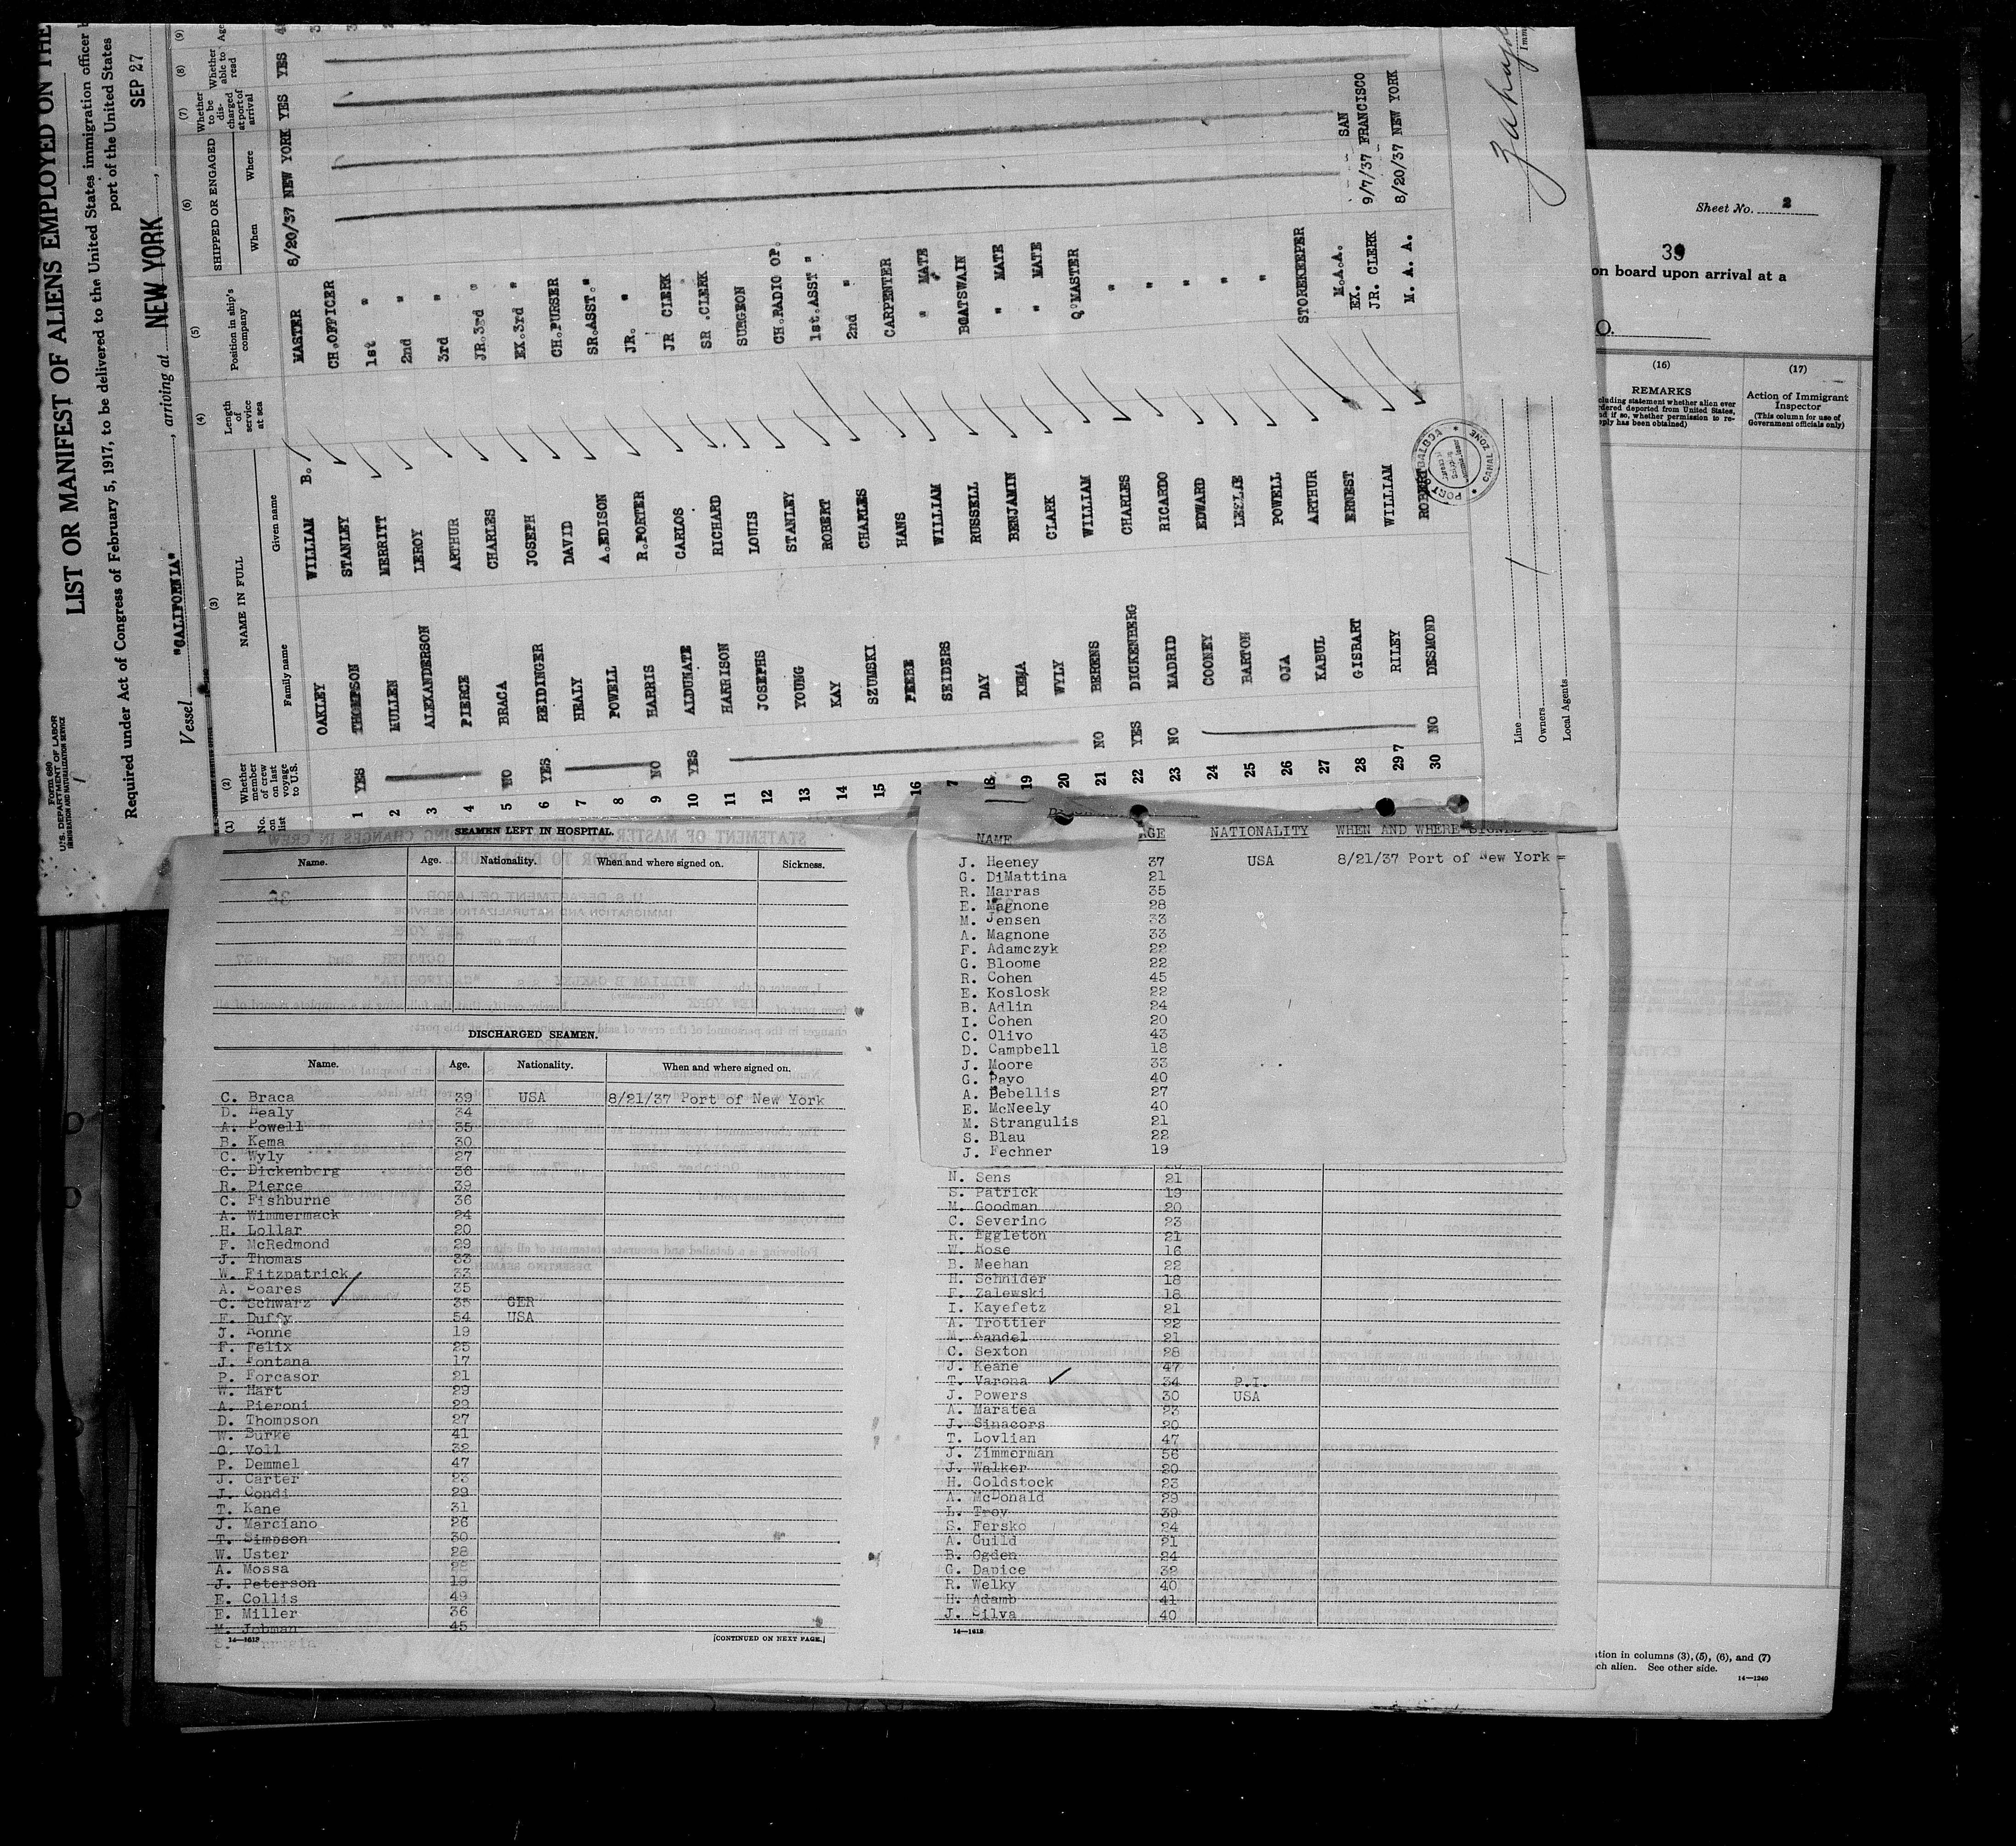 Form 680
U.S. DEPARTMENT OF LABOR
IMMIGRATION AND NATURALIZATION SERVICE
LIST OR MANIFEST OF ALIENS EMPLOYED ON THE
Required under Act of Congress of February 5, 1917, to be delivered to the United States immigration officer
port of the United States
Vessel "CALIFORNIA", arriving at NEW YORK, SEP 27
(1) (2) (3) (4) (5) (6) (7) (8) (9)
No. on list
Whether member of crew on last voyage to U.S.
NAME IN FULL
Family name Given name
Length of service at sea
Position in ship's company
SHIPPED OR ENGAGED
When Where
Whether to be discharged at port of arrival
Whether able to read
1 YES OAKLEY WILLIAM B. MASTER 8/20/37 NEW YORK YES YES
2 THOMPSON STANLEY CH.OFFICER
3 MULLEN MERRITT 1st "
4 ALEXANDERSON LEROY 2nd "
5 NO PIERCE ARTHUR 3rd "
6 YES BRACA CHARLES JR.3rd "
7 REIDINGER JOSEPH EX.3rd "
8 HEALY DAVID CH.PURSER
9 NO POWELL A.EDISON SR.ASST."
10 YES HARRIS R.PORTER JR. "
11 ALDUNATE CARLOS JR CLERK
12 HARRISON RICHARD SR.CLERK
13 JOSEPHS LOUIS SURGEON
14 YOUNG STANLEY CH.RADIO OP.
15 KAY ROBERT 1st.ASST "
16 SZUMSKI CHARLES 2nd "
7 HANS CARPENTER
18 SEIDERS WILLIAM " MATE
19 DAY RUSSELL BOATSWAIN
20 KEMA BENJAMIN " MATE
21 NO WYLY CLARK " MATE
22 YES BERENS WILLIAM Q'MASTER
23 NO DICKENBERG CHARLES "
24 MADRID RICARDO "
25 COONEY EDWARD "
26 BARTON LESLIE "
27 OJA POWELL "
28 KABUL ARTHUR STOREKEEPER
29 GISBART ERNEST M.A.A.
30 NO RILEY WILLIAM EX. JR. CLERK 9/7/37 SAN FRANCISCO
DESMOND ROBERT M. A. A. 8/20/37 NEW YORK
Line
Owners
Local Agents
CANAL ZONE
Sheet No.
39
on board upon arrival at a
O.
(16) (17)
REMARKS
Action of Immigrant Inspector
(This column for use of Government officials only)
SEAMEN LEFT IN HOSPITAL.
Name. Age. Nationality. When and where signed on. Sickness.
DISCHARGED SEAMEN.
Name. Age. Nationality. When and where signed on.
C. Braca 39 USA 8/21/37 Port of New York
D. Healy 34
A. Powell 35
B. Kema 30
C. Wyly 27
C. Dickenberg 36
R. Pierce 39
C. Fishburne 36
A. Wimmermack 24
H. Lollar 20
F. McRedmond 29
J. Thomas 33
W. Fitzpatrick 33
A. Soares 35
C. Schwarz 35 GER
E. Duffy 54 USA
J. Bonne 19
F. Felix 25
J. Fontana 17
P. Forcasor 21
W. Hart 29
A. Pieroni 29
D. Thompson 27
W. Burke 41
O. Voll 32
P. Demmel 47
J. Carter 23
J. Condi 29
T. Kane 31
J. Marciano 26
T. Simpson 30
W. Uster 28
A. Mossa 22
J. Peterson 19
E. Collis 49
E. Miller 36
M. Jobman 45
14—1618
[CONTINUED ON NEXT PAGE.]
NAME AGE NATIONALITY WHEN AND WHERE SIGNED
J. Heeney 37 USA 8/21/37 Port of New York =
G. DiMattina 21
R. Marras 35
E. Magnone 28
M. Jensen 33
A. Magnone 33
F. Adamczyk 22
G. Bloome 22
R. Cohen 45
E. Koslosk 22
B. Adlin 24
I. Cohen 20
C. Olivo 43
D. Campbell 18
J. Moore 33
G. Payo 40
A. Debellis 27
E. McNeely 40
M. Strangulis 21
S. Blau 22
J. Fechner 19
N. Sens 21
S. Patrick 19
M. Goodman 20
C. Severino 23
R. Eggleton 21
W. Rose 16
B. Meehan 22
H. Schnider 18
F. Zalewski 18
I. Kayefetz 21
A. Trottier 22
M. Randel 21
C. Sexton 28
J. Keane 47
T. Varona 34 P.I.
J. Powers 30 USA
A. Maratea 23
J. Sinacors 20
T. Lovlian 47
J. Zimmerman 56
J. Walker 20
H. Goldstock 23
A. McDonald 29
L. Troy 39
S. Fersko 24
A. Guild 21
B. Ogden 24
G. Dapice 32
R. Welky 40
H. Adamb 41
J. Silva 40
14—1618
ation in columns (3), (5), (6), and (7)
ch alien. See other side.
14—1240